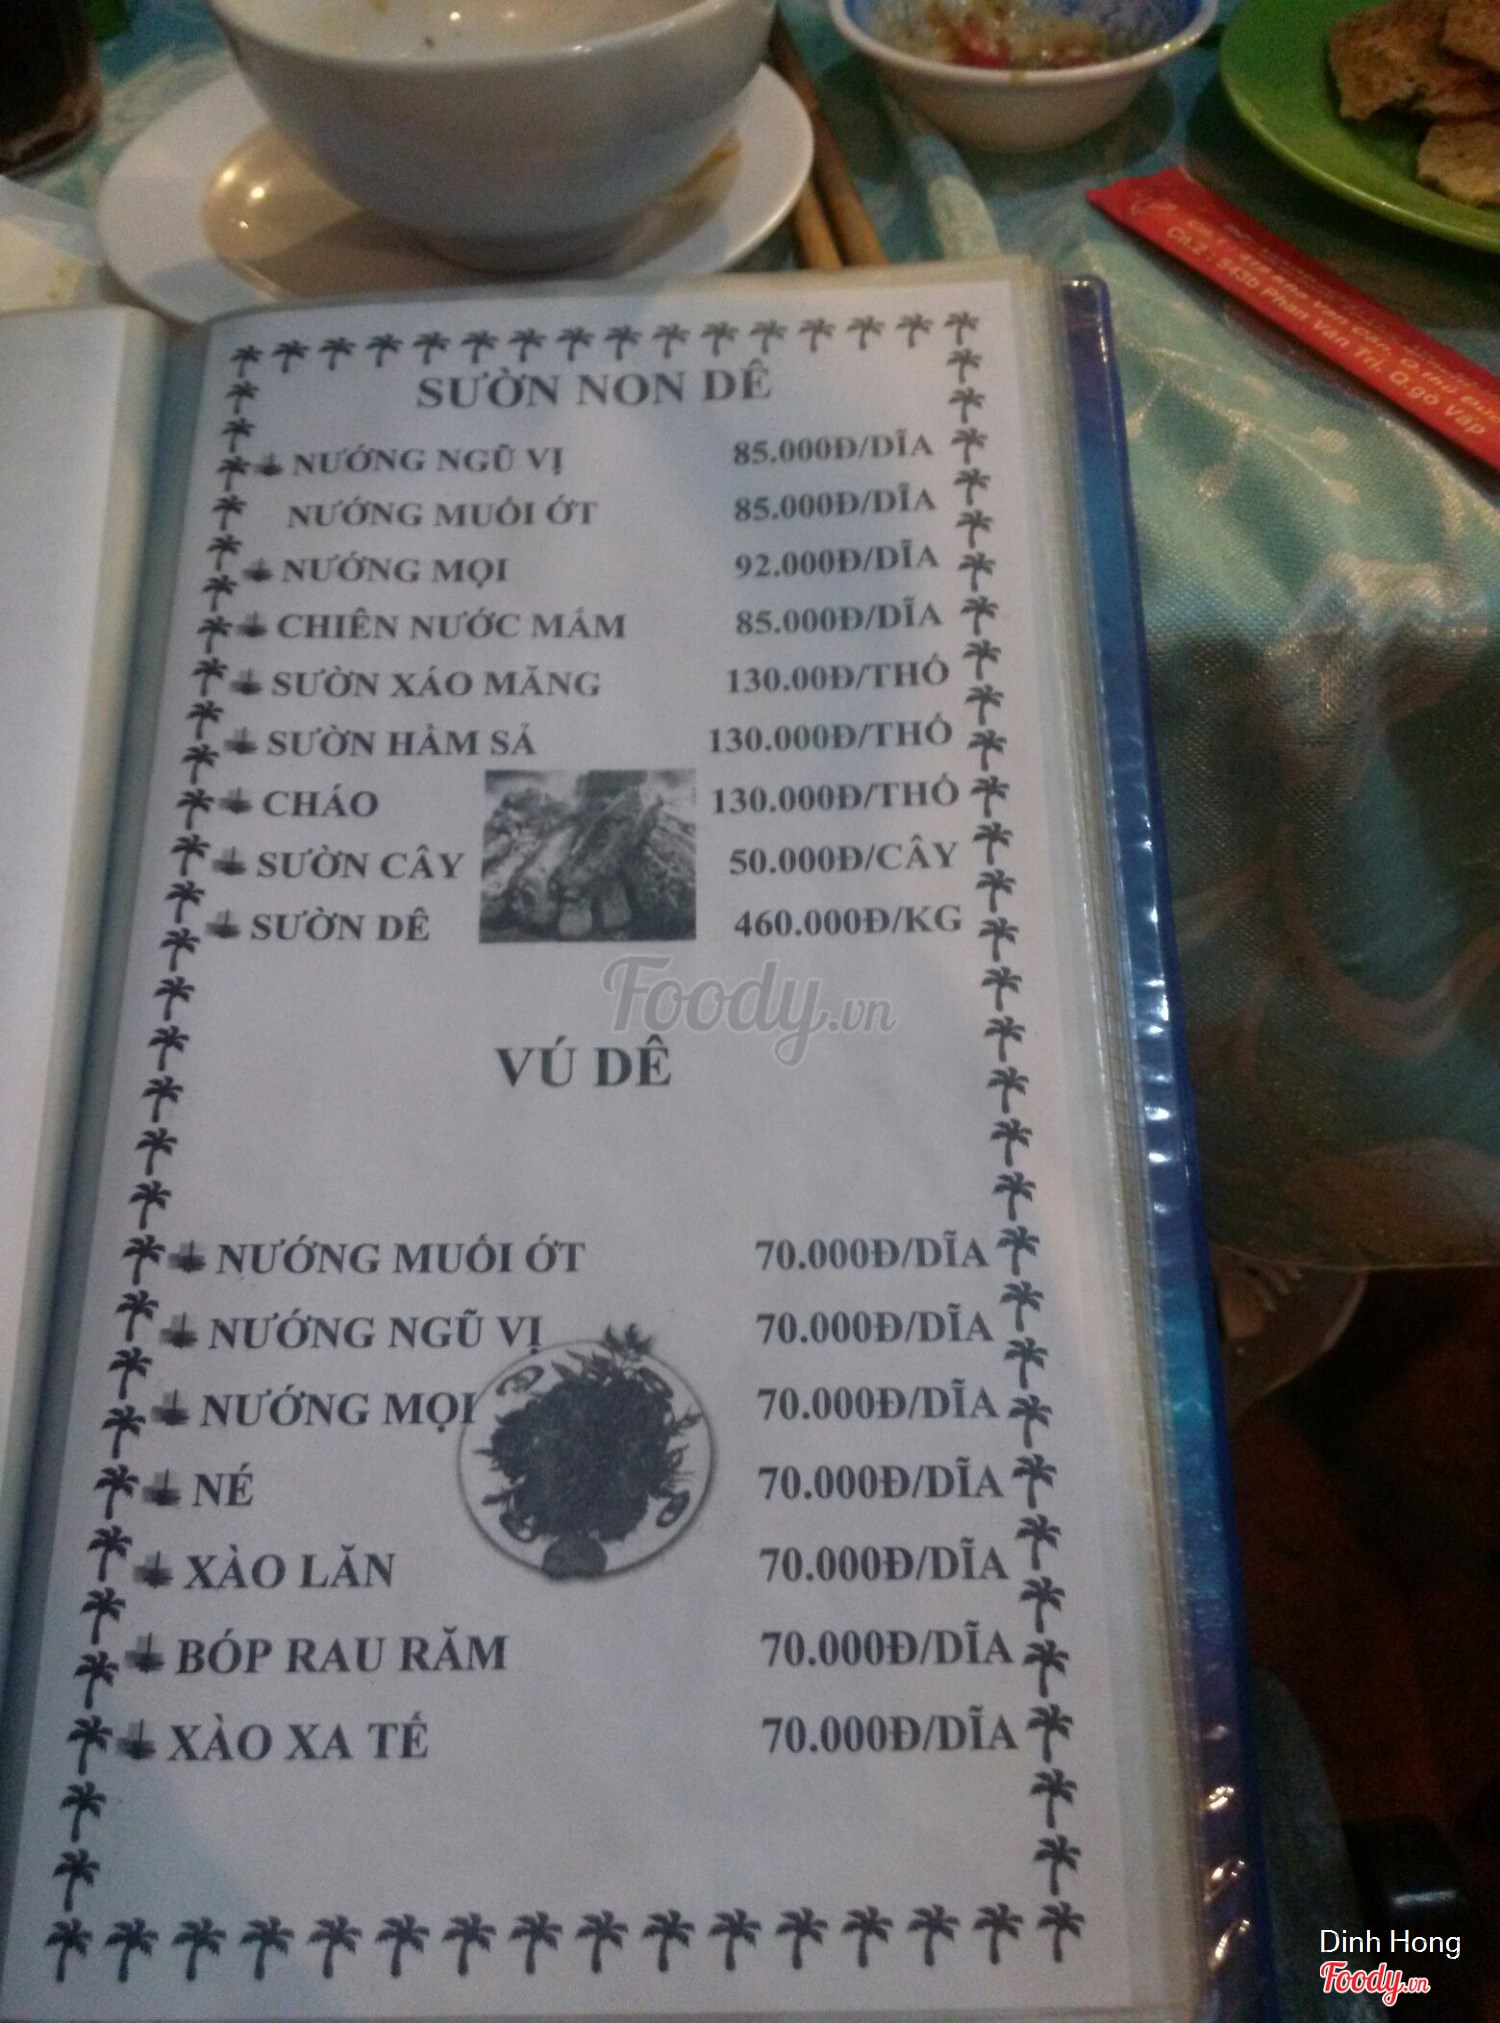 Ch.2 : 543D Phan Văn Trị, Q.gò Vấp
SƯỜN NON DÊ
NƯỚNG NGŨ VỊ 85.000Đ/DĨA
NƯỚNG MUỐI ỚT 85.000Đ/DĨA
NƯỚNG MỌI 92.000Đ/DĨA
CHIÊN NƯỚC MẮM 85.000Đ/DĨA
SƯỜN XÁO MĂNG 130.00Đ/THỐ
SƯỜN HẦM SẢ 130.000Đ/THỐ
CHÁO 130.000Đ/THỐ
SƯỜN CÂY 50.000Đ/CÂY
SƯỜN DÊ 460.000Đ/KG
Foody.vn
VÚ DÊ
NƯỚNG MUỐI ỚT 70.000Đ/DĨA
NƯỚNG NGŨ VỊ 70.000Đ/DĨA
NƯỚNG MỌI 70.000Đ/DĨA
NÉ 70.000Đ/DĨA
XÀO LĂN 70.000Đ/DĨA
BÓP RAU RĂM 70.000Đ/DĨA
XÀO XA TẾ 70.000Đ/DĨA
Dinh Hong
Foody.vn